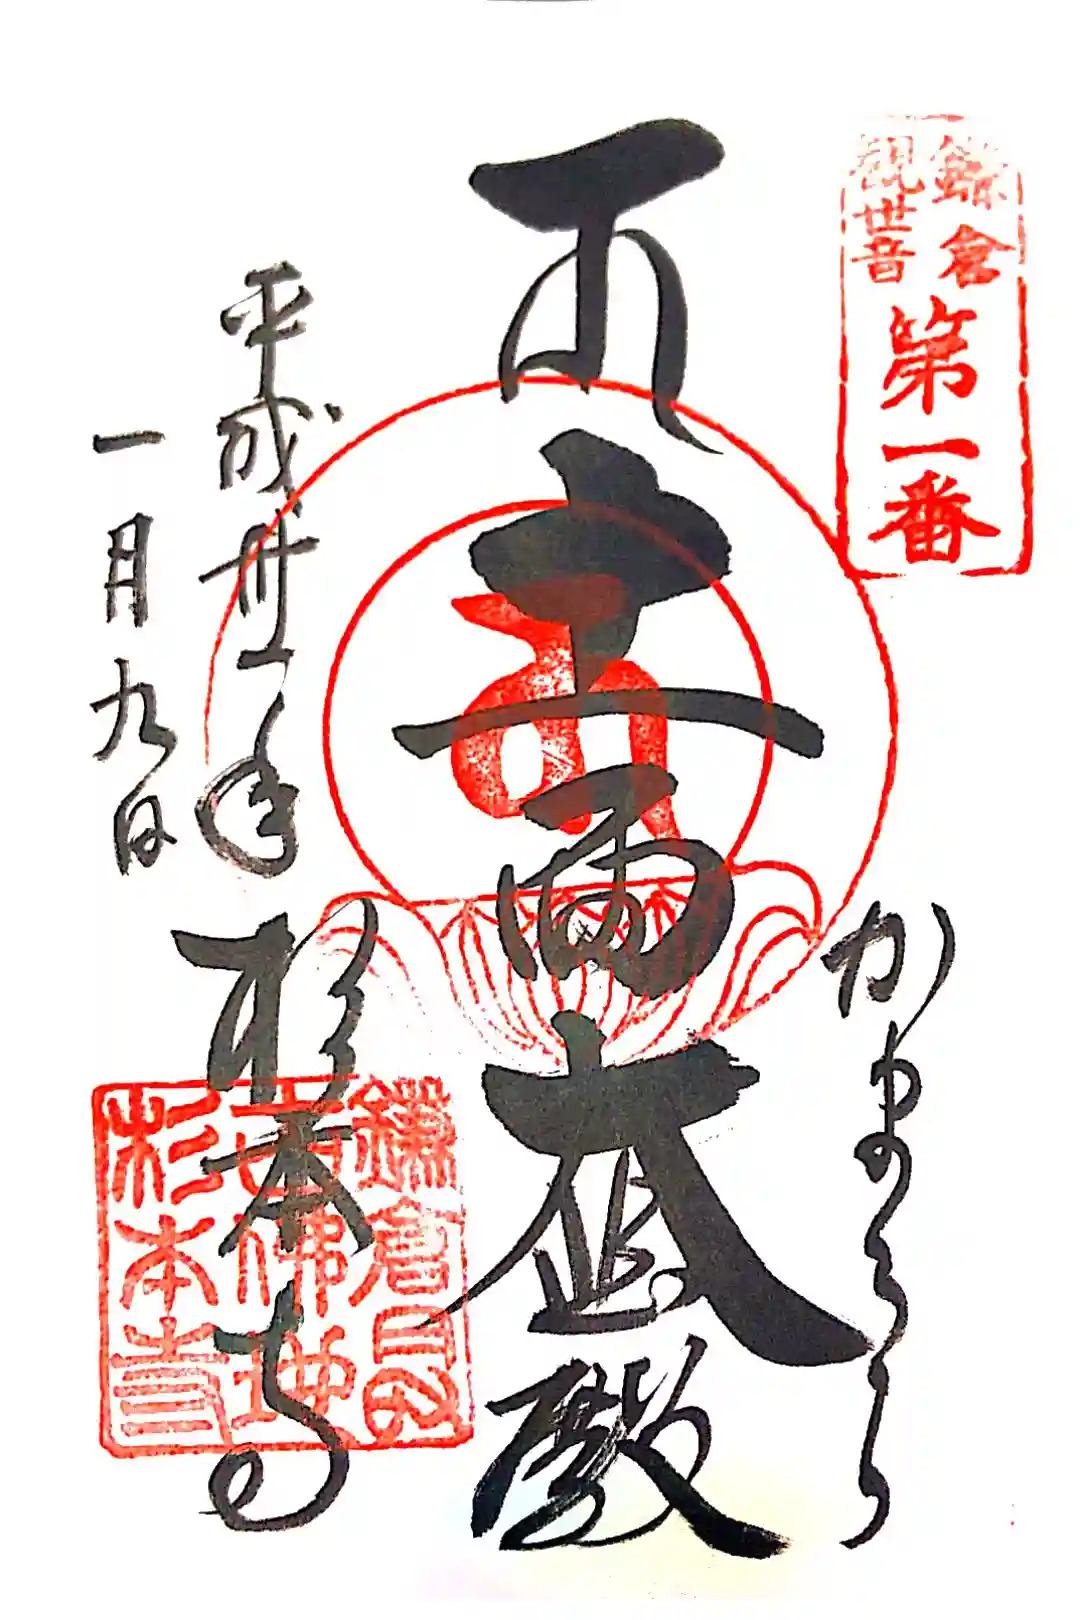 鎌倉
観世音
第一番
かまくら
十一面大悲殿
平成卅一年
一月九日
杉本寺
鎌倉最
古佛地
杉本寺